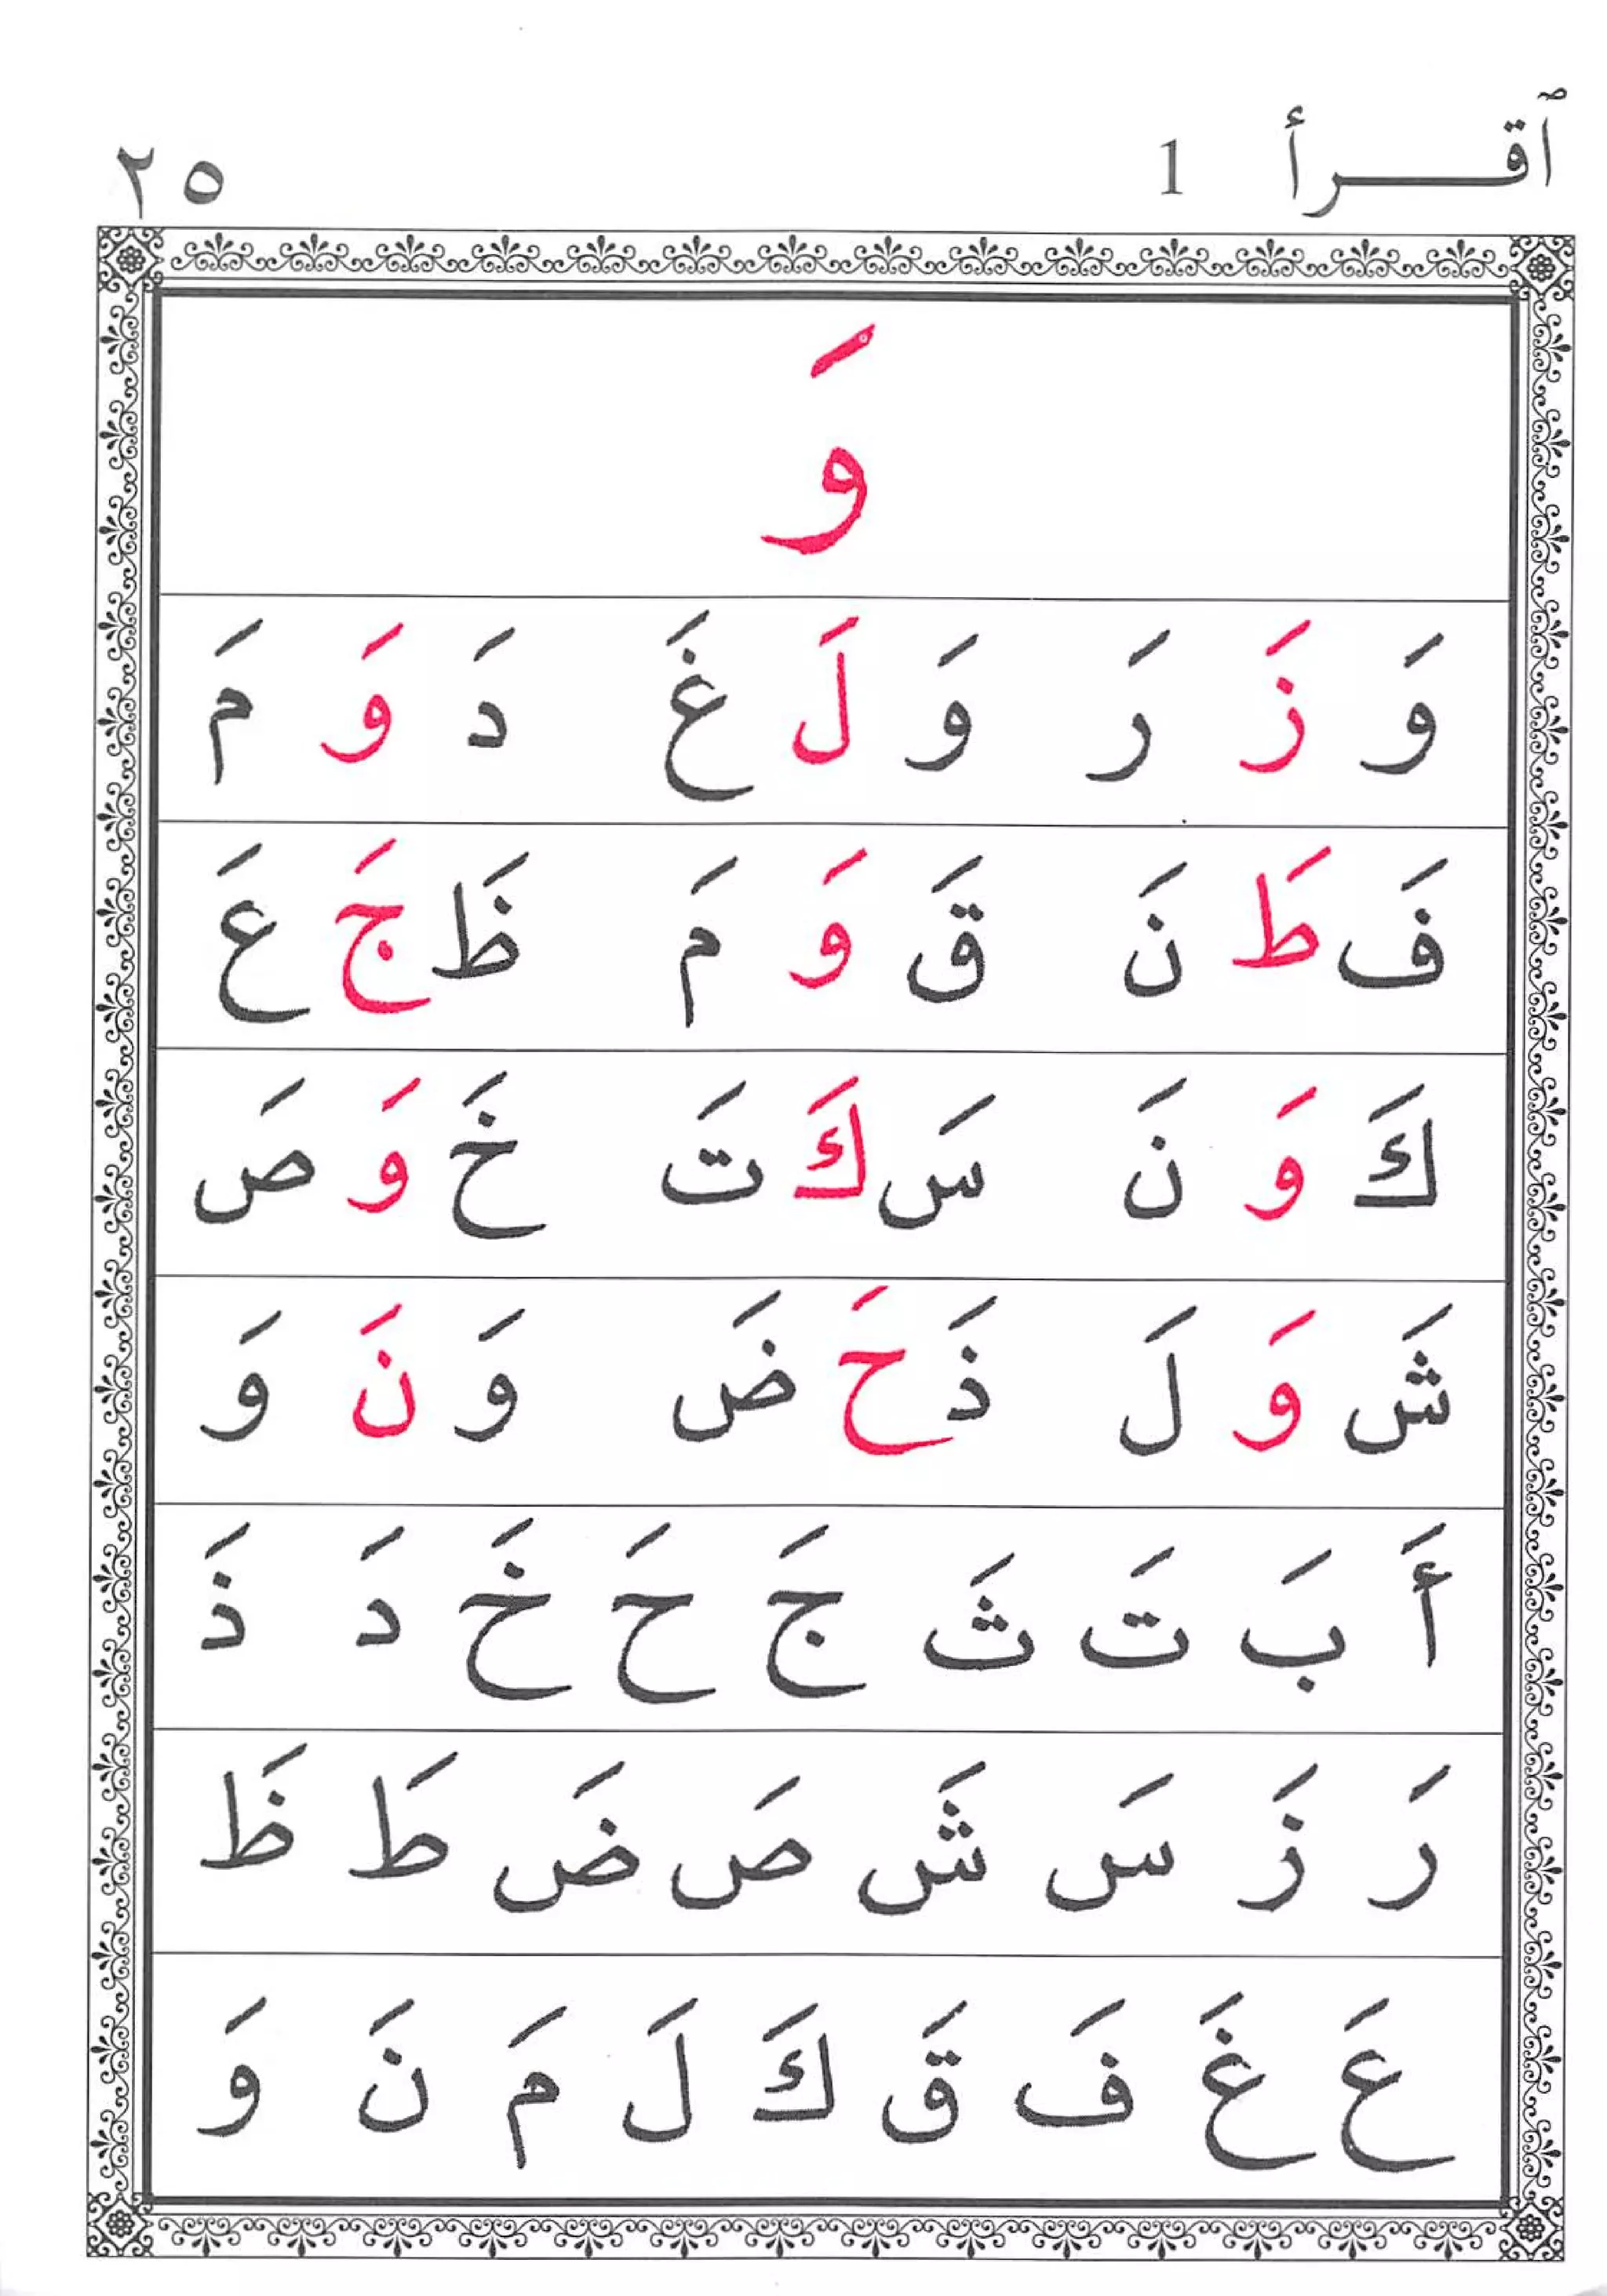 ٱقـــرأ 1 ٢٥
وَ
وَ زَ رَ وَ لَ غَ دَ وَ مَ
فَ طَ نَ قَ وَ مَ ظَ جَ عَ
كَ وَ نَ سَ كَ تَ خَ وَ صَ
شَ وَ لَ ذَ حَ ضَ وَ نَ وَ
أَ بَ تَ ثَ جَ حَ خَ دَ ذَ
رَ زَ سَ شَ صَ ضَ طَ ظَ
عَ غَ فَ قَ كَ لَ مَ نَ وَ